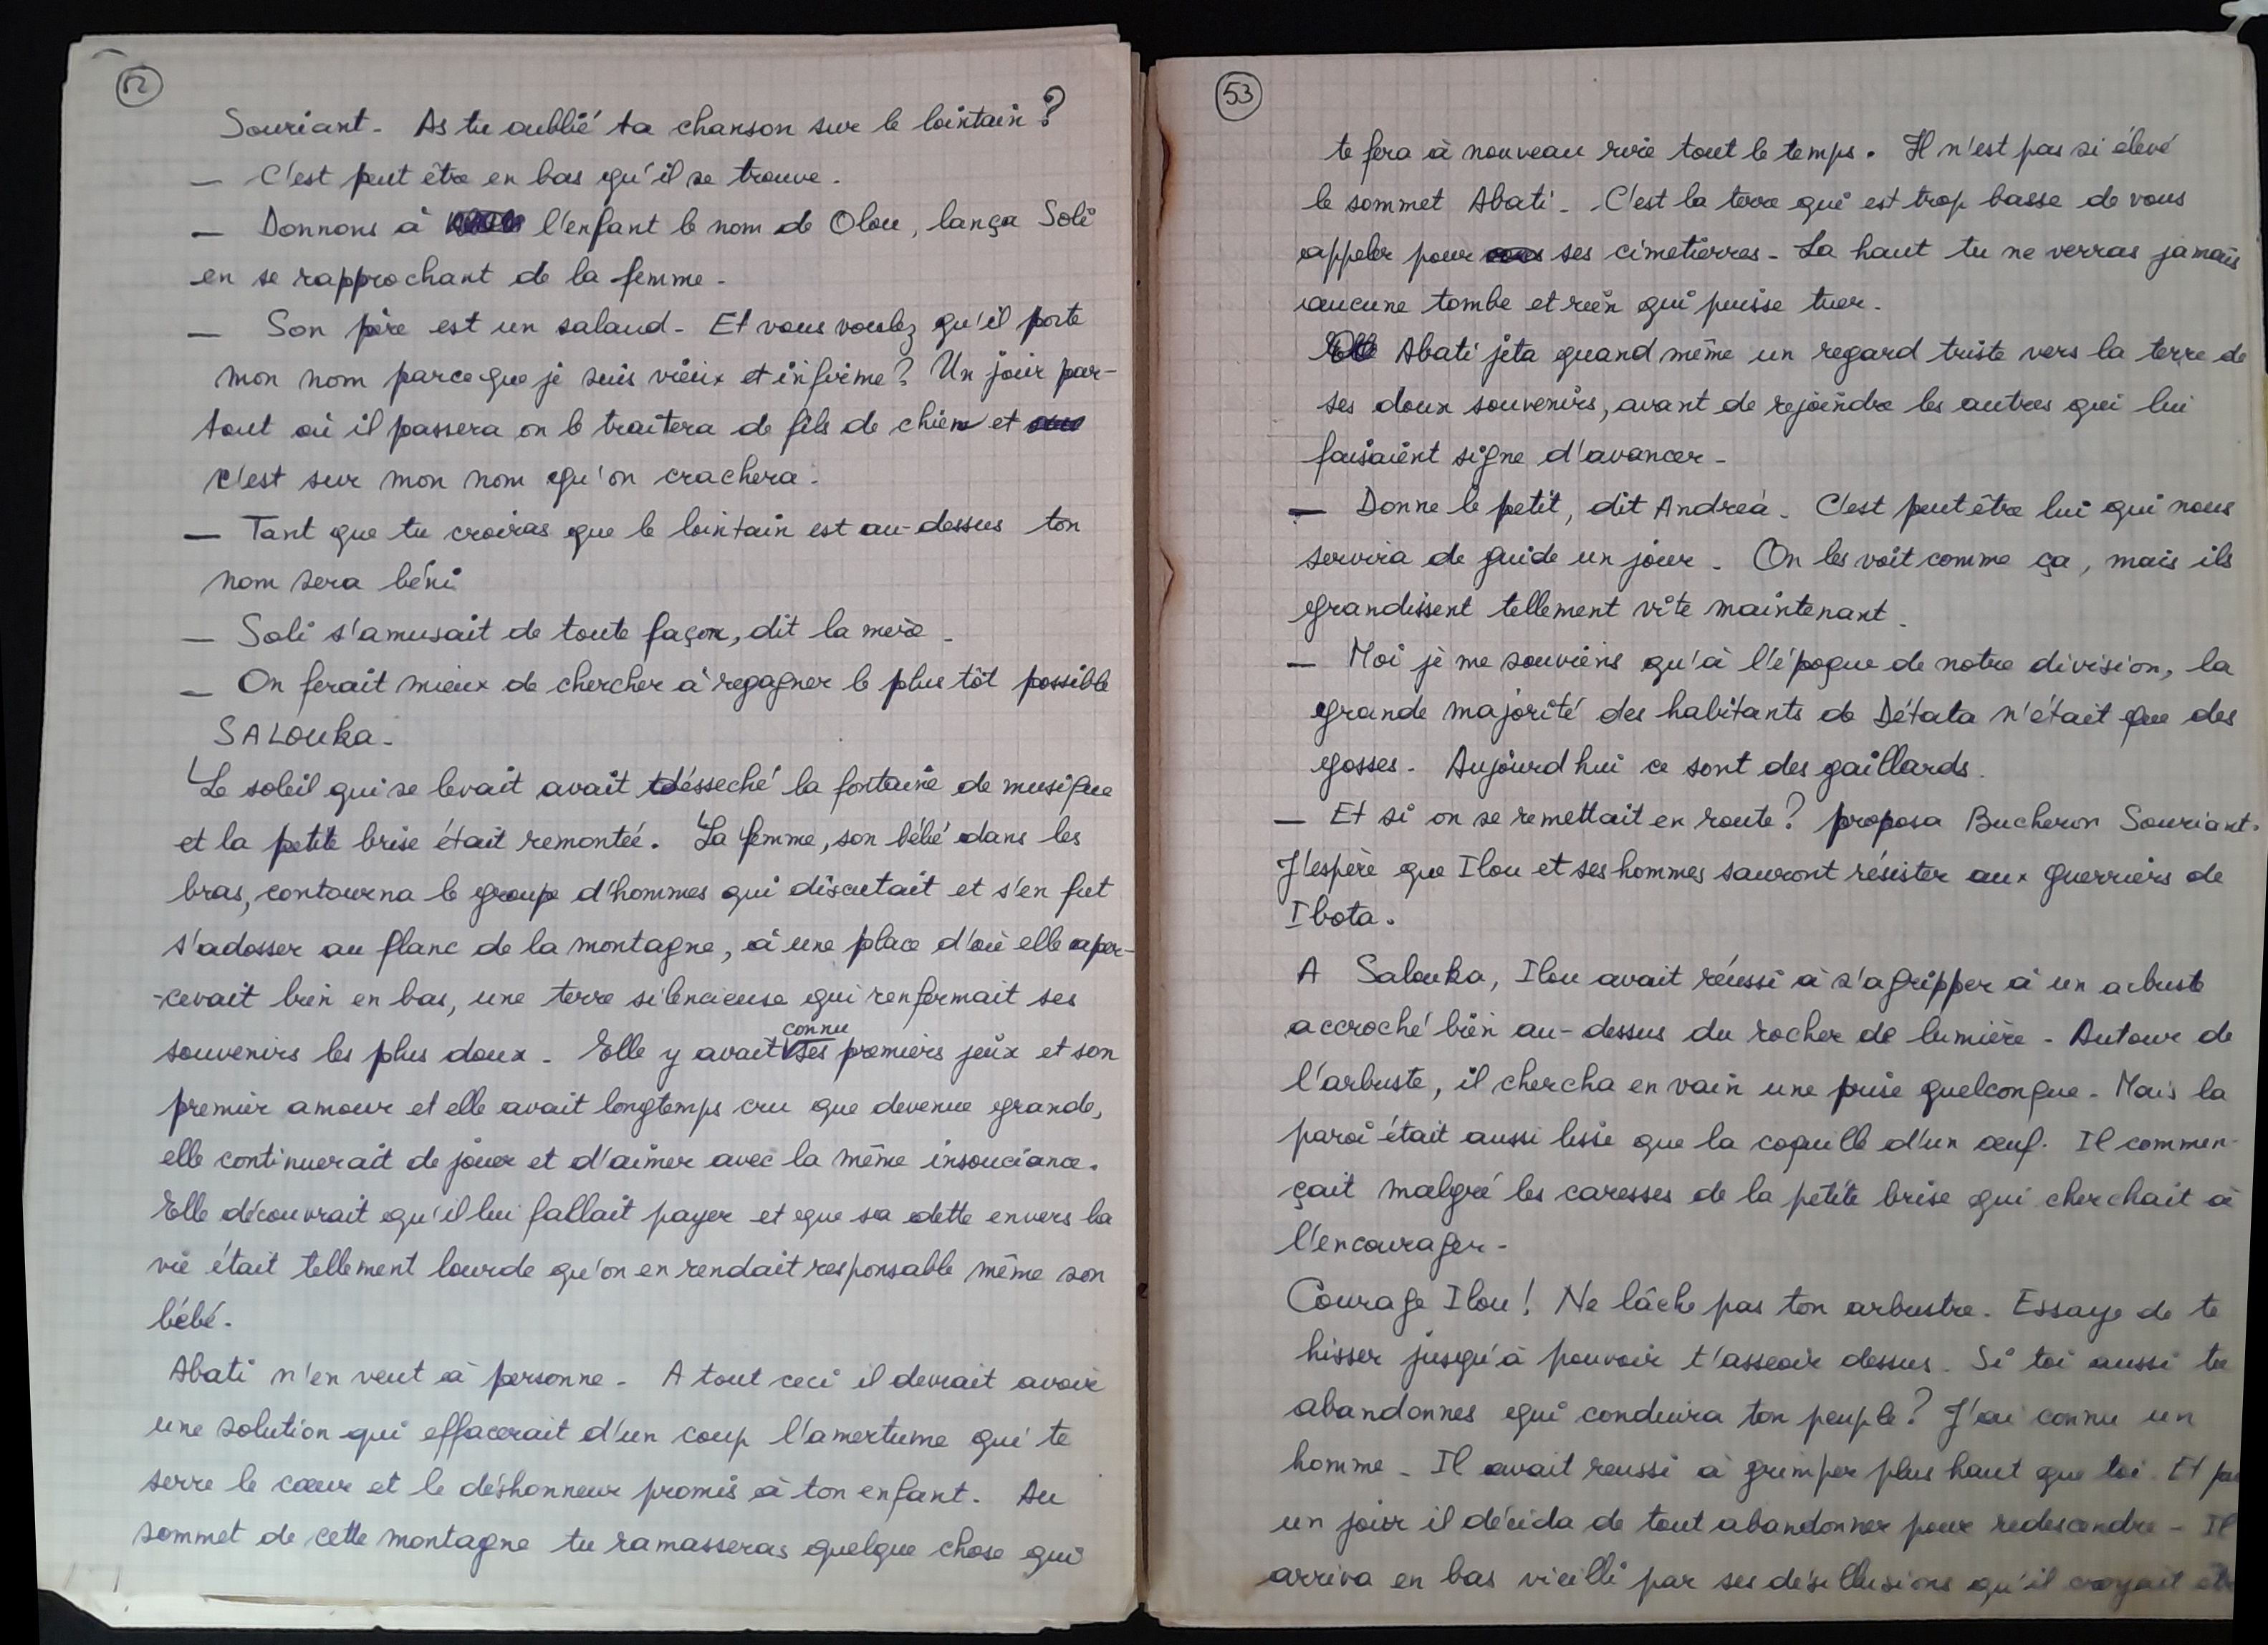 52
Souriant - As tu oublié ta chanson sur le lointain ?
— C'est peut être en bas qu'il se trouve.
— Donnons à l'enfant le nom de Olou, lança Soli
en se rapprochant de la femme -
— Son père est un salaud - Et vous voulez qu'il porte
mon nom parce que je suis vieux et infirme ? Un jour par-
tout où il passera on le traitera de fils de chien et
c'est sur mon nom qu'on crachera.
— Tant que tu croiras que le lointain est au-dessus ton
nom sera béni
— Soli s'amusait de toute façon, dit la mère -
— On ferait mieux de chercher à regagner le plus tôt possible
SALOUKA -
Le soleil qui se levait avait désseché la fontaine de musique
et la petite brise était remontée. La femme, son bébé dans les
bras, contourna le groupe d'hommes qui discutait et s'en fut
s'adosser au flanc de la montagne, à une place d'où elle aper-
-cevait bien en bas, une terre silencieuse qui renfermait ses
souvenirs les plus doux - Elle y avait connu ses premiers jeux et son
premier amour et elle avait longtemps cru que devenue grande,
elle continuerait de jouer et d'aimer avec la même insouciance.
Elle découvrait qu'il lui fallait payer et que sa dette envers la
vie était tellement lourde qu'on en rendait responsable même son
bébé -
Abati n'en veut à personne - A tout ceci il devrait avoir
une solution qui effacerait d'un coup l'amertume qui te
serre le cœur et le déshonneur promis à ton enfant. Au
sommet de cette montagne tu ramasseras quelque chose qui
53
te fera à nouveau rire tout le temps. Il n'est pas si élevé
le sommet Abati - C'est la terre qui est trop basse de vous
appeler pour ses cimetierres - La haut tu ne verras jamais
aucune tombe et rien qui puisse tuer.
Abati jeta quand même un regard triste vers la terre de
ses doux souvenirs, avant de rejoindre les autres qui lui
faisaient signe d'avancer -
— Donne le petit, dit Andréa - C'est peut être lui qui nous
servira de guide un jour - On les voit comme ça, mais ils
grandissent tellement vite maintenant -
— Moi je me souviens qu'à l'époque de notre division, la
grande majorité des habitants de Détata n'était que des
gosses - Aujourd'hui ce sont des gaillards.
— Et si on se remettait en route ? proposa Bucheron Souriant.
J'espère que Ilou et ses hommes sauront résister aux guerriers de
Ibota.
A Salouka, Ilou avait réussi à s'agripper à un arbuste
accroché bien au-dessus du rocher de lumière - Autour de
l'arbuste, il chercha en vain une prise quelconque - Mais la
paroi était aussi lisse que la coquille d'un œuf. Il commen-
çait malgré les caresses de la petite brise qui cherchait à
l'encourager -
Courage Ilou ! Ne lâche pas ton arbustre - Essaye de te
hisser jusqu'à pouvoir t'asseoir dessus - Si toi aussi tu
abandonnes qui conduira ton peuple ? J'ai connu un
homme - Il avait reussi à grimper plus haut que toi. Et
un jour il décida de tout abandonner pour redescendre - Il
arriva en bas vieilli par ses désillusions qu'il croyait